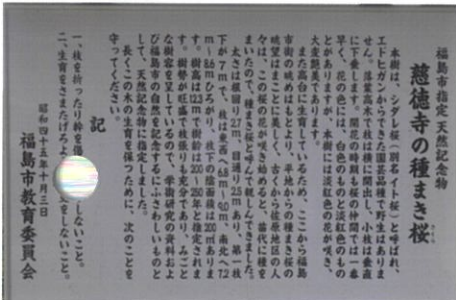 福島市指定 天然記念物
慈徳寺の種まき桜
本樹は、シダレ桜(別名イト桜)と呼ばれ、
エドヒガンからできた園芸品種で野生はありま
せん。落葉高木で枝は横に開出し、小枝は垂直
に下垂します。開花の時期も桜の仲間では一番
早く、花の色には、白色のものと淡紅色のもの
とがありますが、本樹には淡紅色の花が咲き、
大変艶美であります。
また高台に生育しているため、ここから福島
市街の眺めはもとより、平地からの種まき桜の
眺望はまことに美しく、古くから佐原地区の人
々は、この桜の花が咲き始めると、苗代に種を
まいたので、種まき桜と呼んで親しんできました。
太さは根廻り2.7m、目通り2.5mあり、第一枝
下が7mで、枝は東西へ6.8m〜9.0m、南北へ7.2
m〜8.6mひろがり、枝の総面積は200㎡ありま
す。樹高は12.5mで樹齢は200〜250年と推定されま
す。樹勢が旺盛で枝張りも充分であり、みごと
な樹容を呈しているので、学術研究の資料およ
び福島市の自然を記念するにふさわしいものと
して、天然記念物に指定しました。
長くこの木の生育を保つために、次のことを
守ってください。
記
一、枝を折ったり幹を傷 しないこと。
二、生育をさまたげ をしないこと。
昭和四十五年十月三日
福島市教育委員会